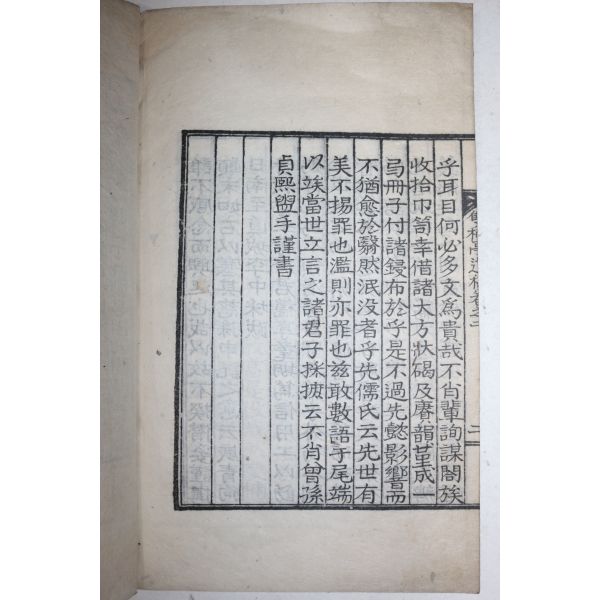 乎耳目何必多文爲貴哉不肖輩詢謀闔族
收拾巾笥幸借諸大方狀碣及賡韻菫成一
弓冊子付諸鋟布於乎是不過先懿影響而
不猶愈於翳然泯没者乎先儒氏云先世有
美不揚罪也濫則亦罪也玆敢數語于尾端
以竢當世立言之諸君子採摭云不肖曾孫
貞熙盥手謹書
亭遺稿卷之二
二